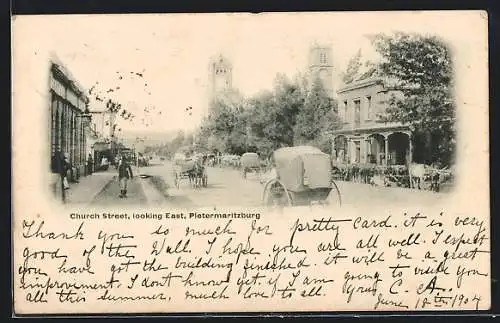 Church Street, looking East, Pietermaritzburg
Thank you so much for pretty Card. it is very
good of the Wall. I hope you are all well. I expect
you have got the building finished. it will be a great
improvement. I don't know yet if I am going to visit you
all this summer, much love to all. Yours C. A.
June 18th 1904